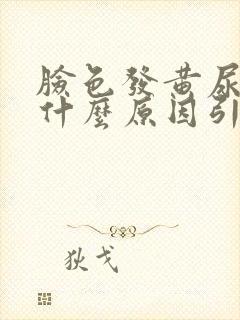 臉色發黃尿
什麼原因引
狄戈